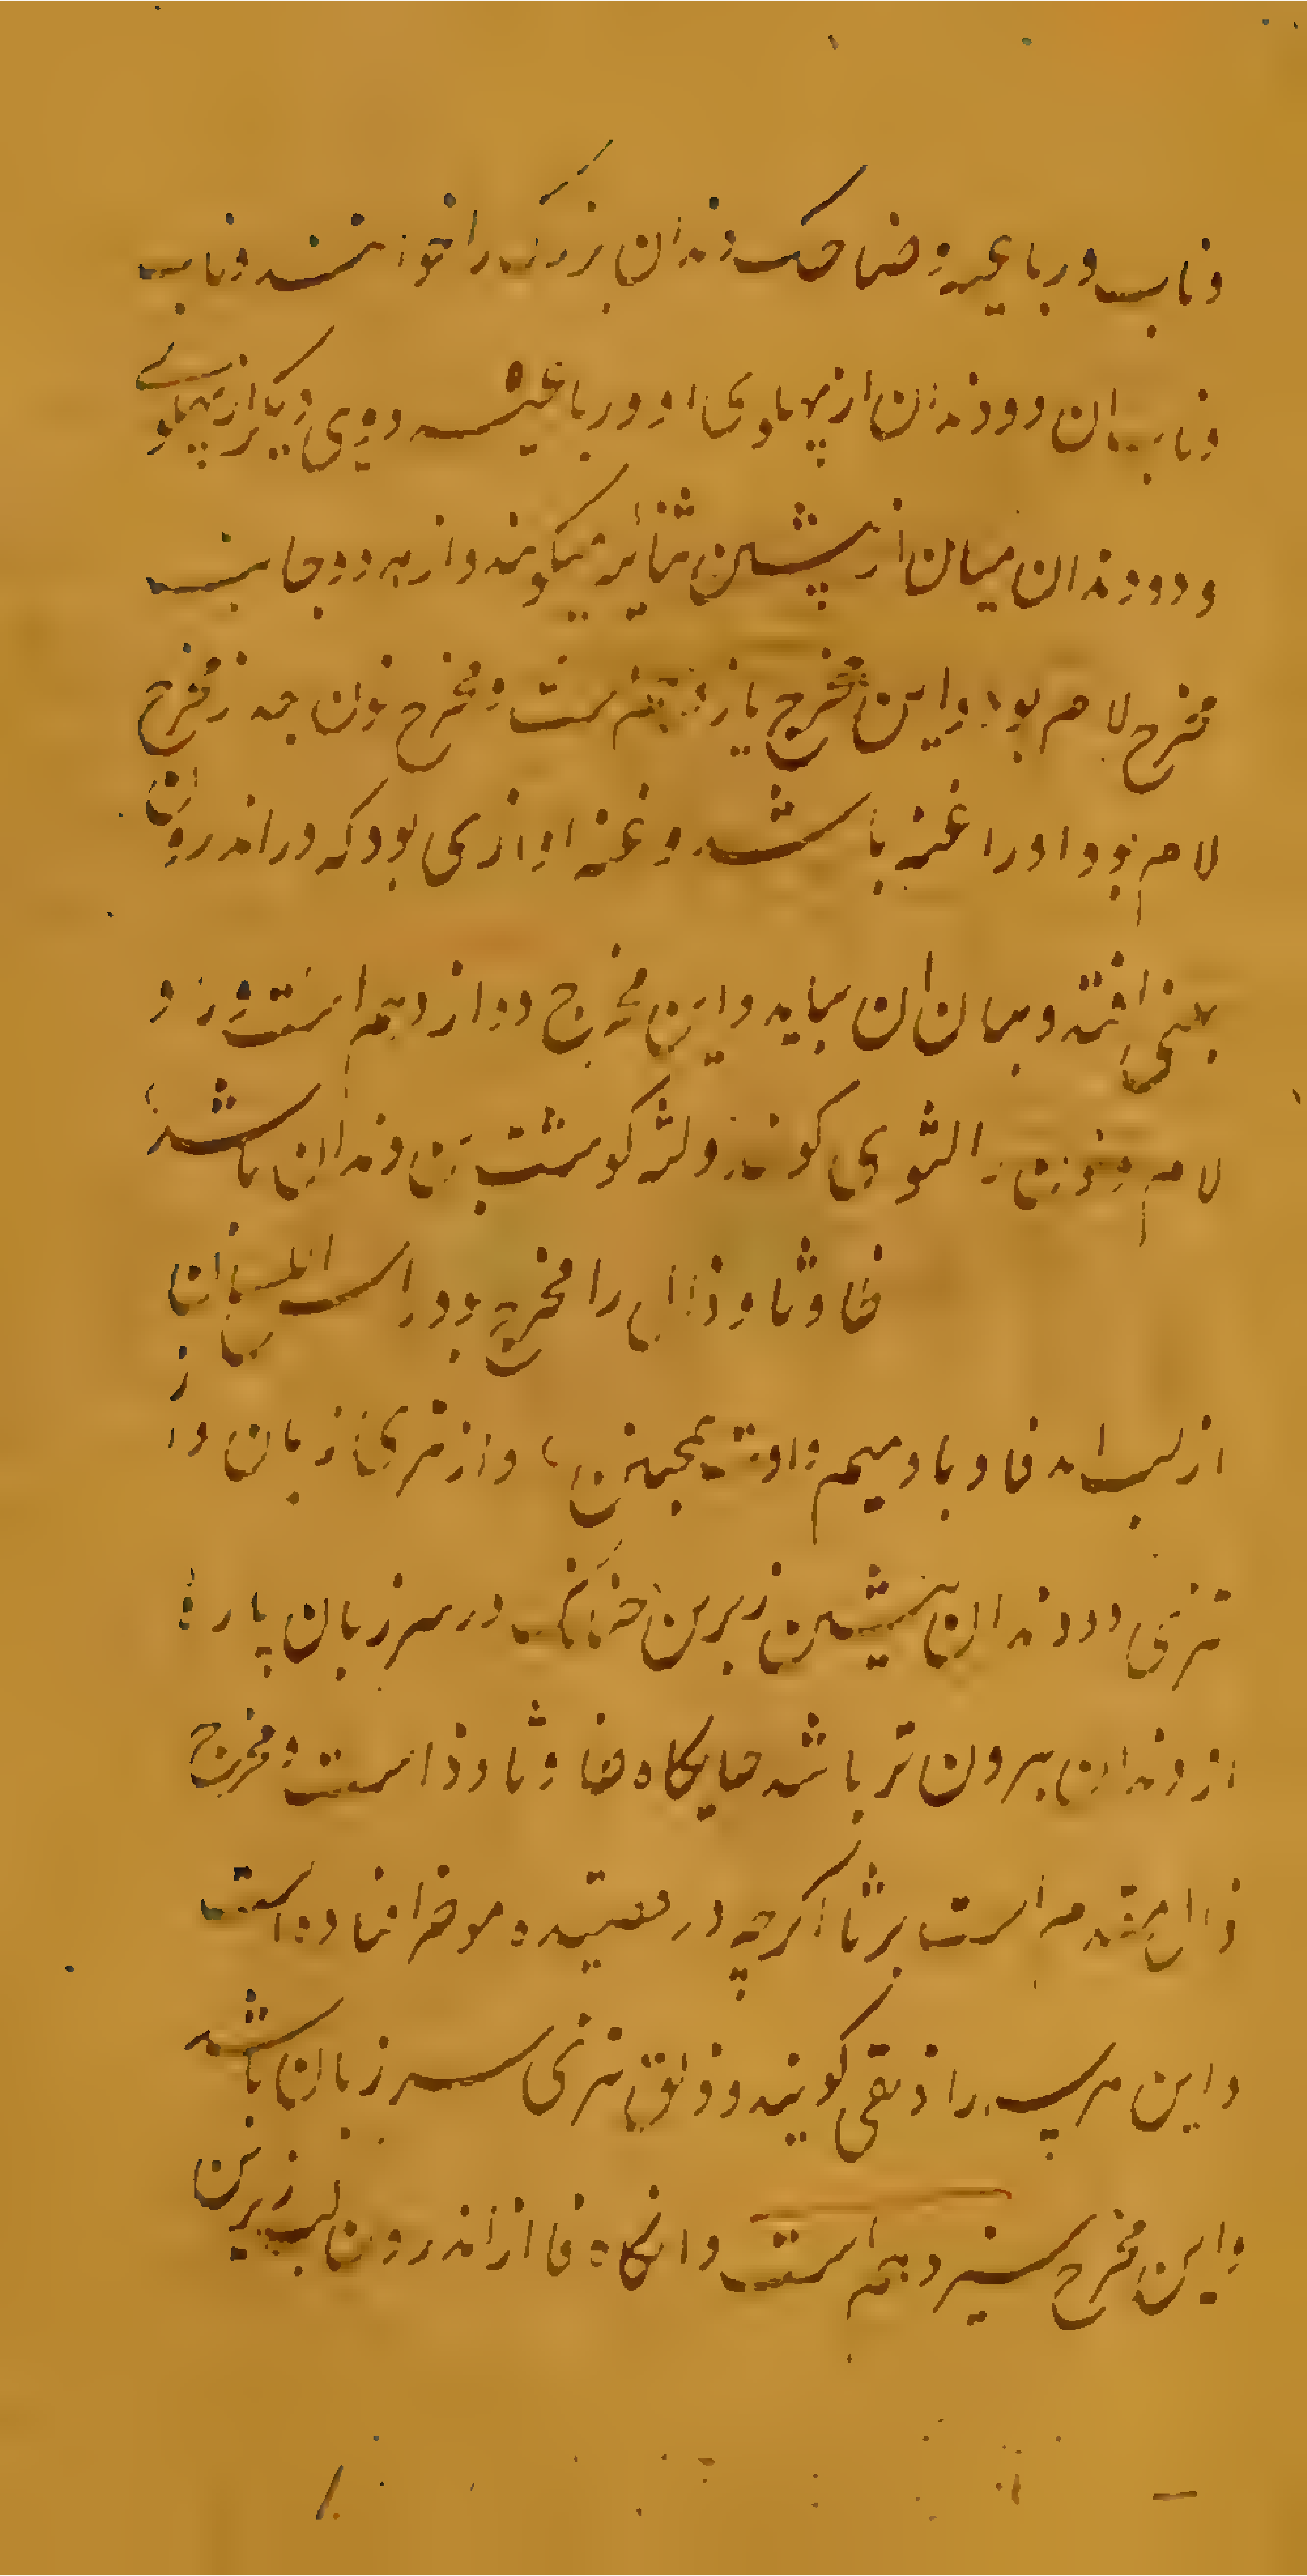 و ناب و رباعیه و ضاحک دندان بزرک را خوانند و ناب
و ناب ان دو دندان از پهلوی او و رباعیه دوی دیکر از پهلوی
و دو دندان میان از پیشین ثنایه میکویند و از هر دو جانب
مخرج لام بود و این مخرج یازدهم است و مخرج نون هم ز مخرج
لام بود و او را غنه باشد و غنه اوازی بود که در اندرون
بینی افتد و میان ان بیاید و این مخرج دوازدهم است و ر و
لام و نون را لثوی کویند و لثه کوشت بن دندان باشد
ظا و ثا و ذال را مخرج بود راس اللسان
از لب اند فا و با و میم و او و از تیزی زبان و از
تیزی دو دندان پیشین زبرین در سر زبان پاره
از دندان بیرون تر باشد جایکاه ظا و ثا و ذا است و مخرج
ذال مقدم است بر ثا اکرچه در موخر افتاده است
و این هر سه را ذلقی کویند و ذلق تیزی سر زبان باشد
و این مخرج سیزدهم است و انکاه فا از اندرون لب زیرین